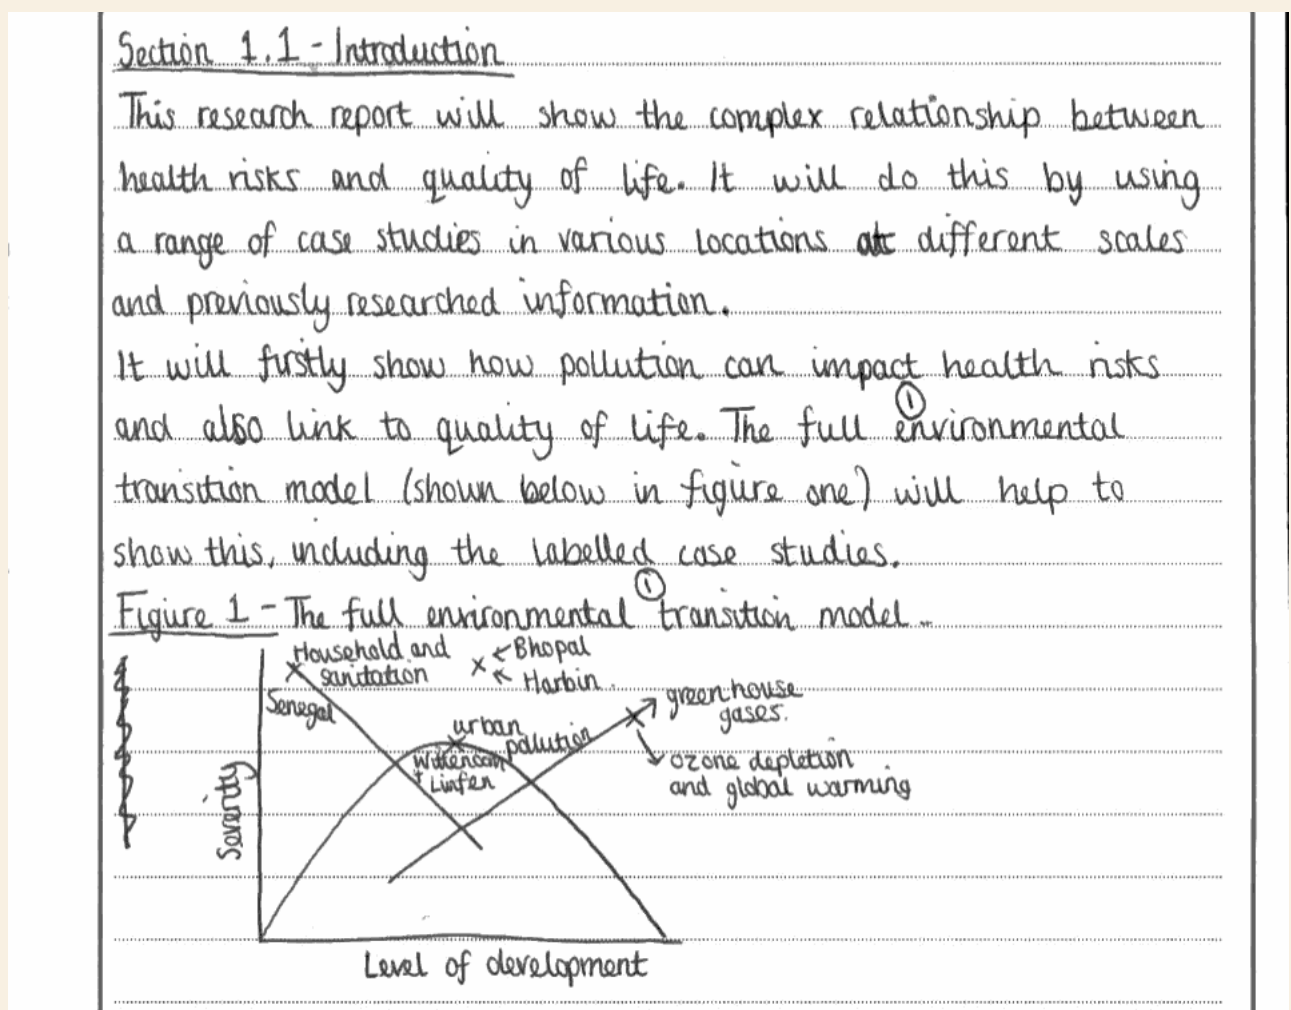 Section 1.1 - Introduction
This research report will show the complex relationship between
health risks and quality of life. It will do this by using
a range of case studies in various locations at different scales
and previously researched information.
It will firstly show how pollution can impact health risks
and also link to quality of life. The full ① environmental
transition model (shown below in figure one) will help to
show this, including the labelled case studies.
Figure 1 - The full environmental ① transition model.
Household and
sanitation
Senegal
← Bhopal
← Harbin.
urban
pollution
+ Linfen
greenhouse
gases.
ozone depletion
and global warming
Severity
Level of development